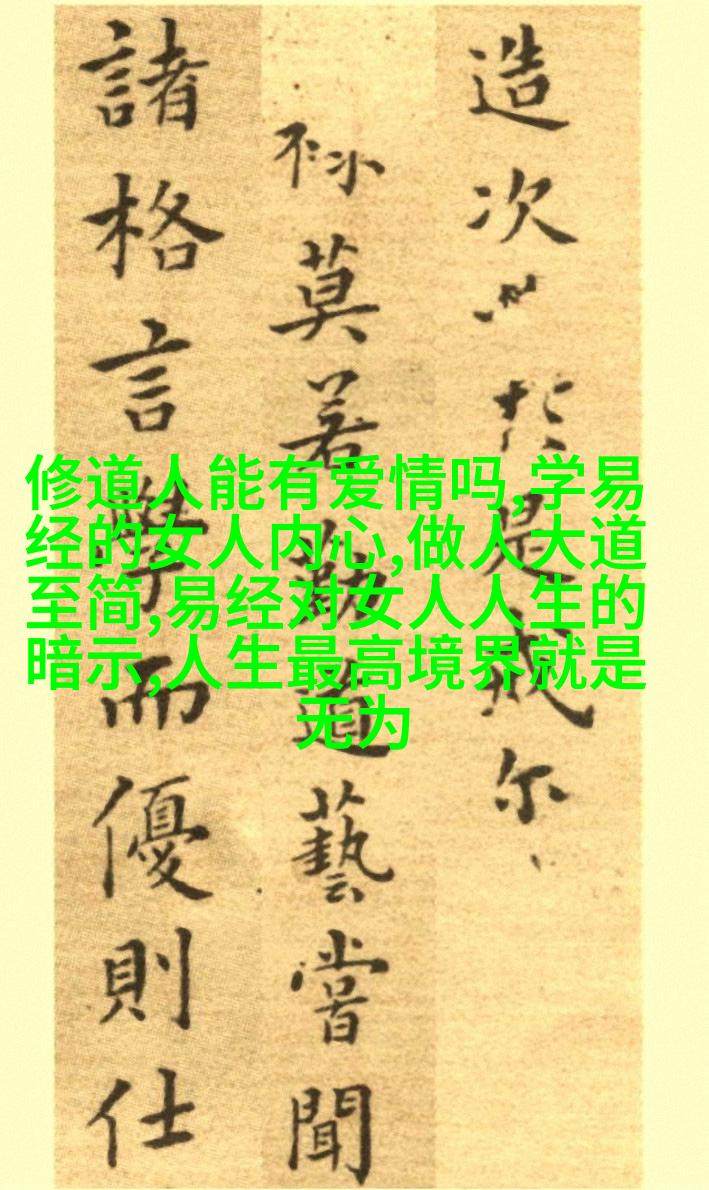 造次於是戒尔
莫若勤道藝嘗聞
諸格言學而優則仕
修道人能有爱情吗,学易
经的女人内心,做人大道
至简,易经对女人人生的
暗示,人生最高境界就是
无为